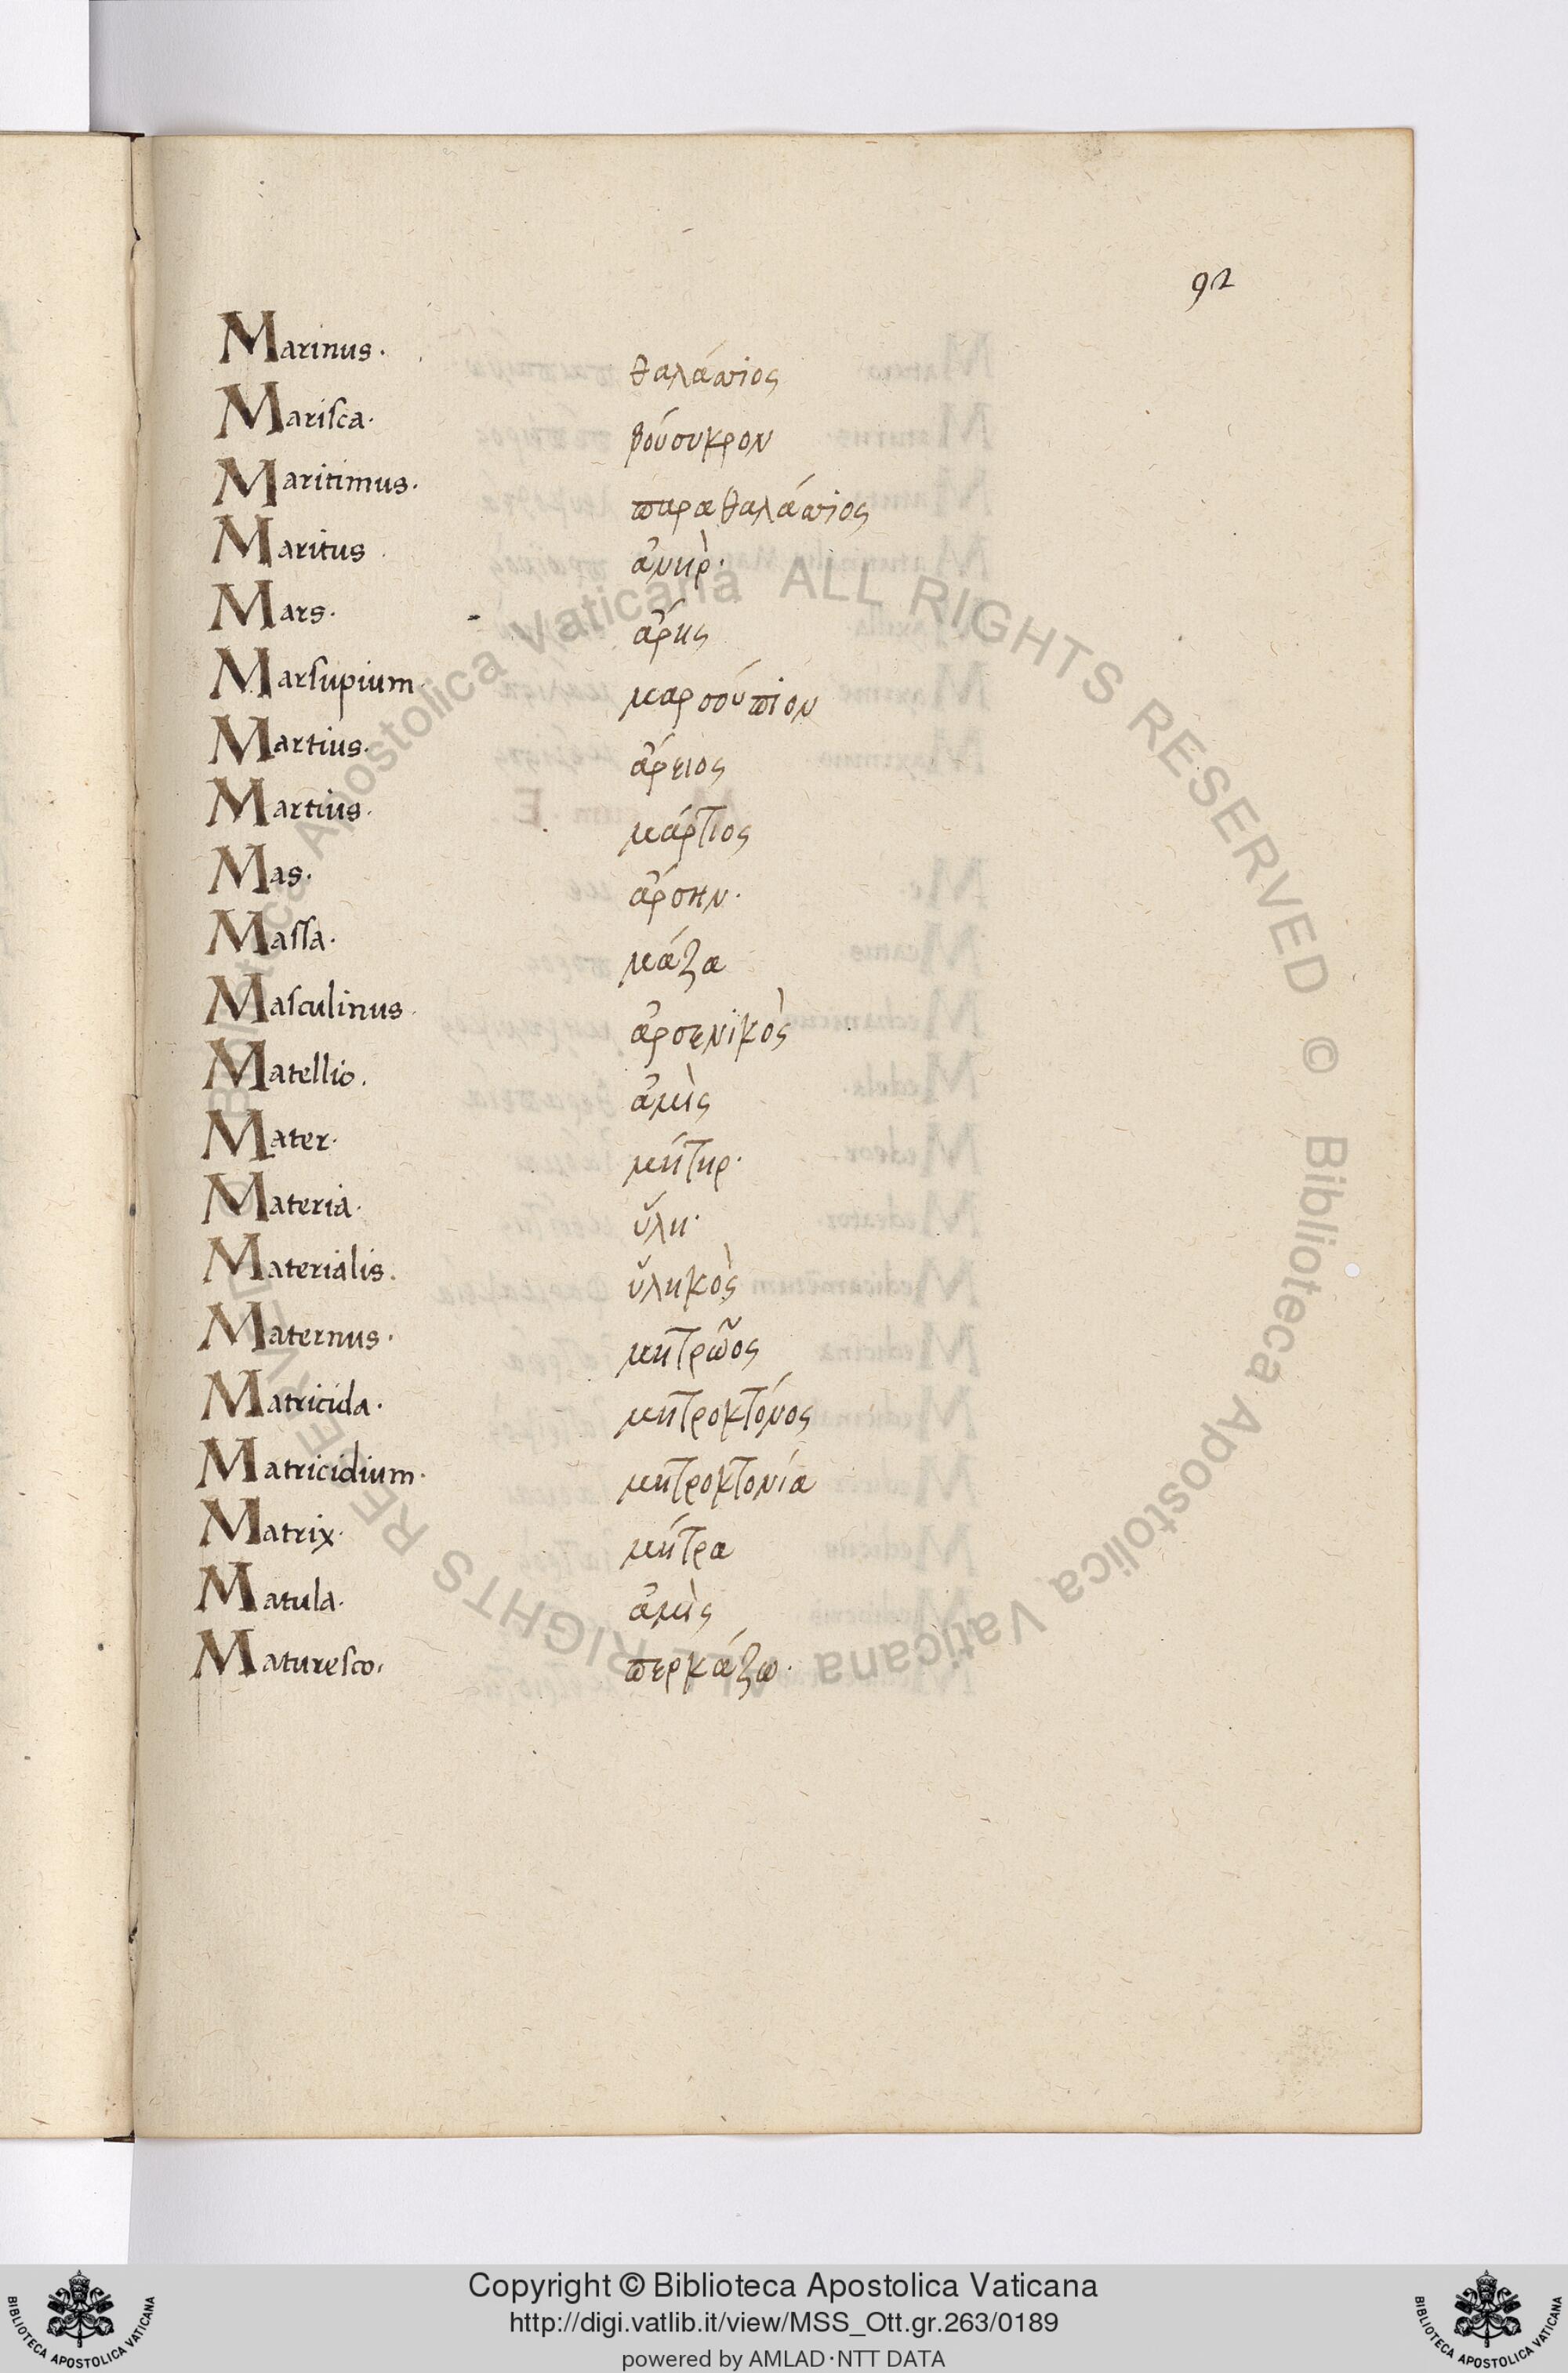 92
Marinus· θαλάττιος
Mariſca· βούσυκρον
Maritimus· παραθαλάττιος
Maritus ἀνὴρ·
Mars· ἄρης
Marſupium μαρσούπιον
Martius· ἄρειος
Martius· μάρτιος
Mas· ἄρσην·
Maſſa· μάζα
Maſculinus· ἀρσενικὸς
Matellio. ἀμὶς
Mater· μήτηρ·
Materia· ὕλη·
Materialis. ὑλικὸς
Maternus· μητρῶος
Matricida· μητροκτόνος
Matricidium· μητροκτονία
Matrix· μήτρα
Matula· ἀμὶς
Matureſco, περκάζω·
Biblioteca Apostolica Vaticana ALL RIGHTS RESERVED © Biblioteca Apostolica Vaticana
Copyright © Biblioteca Apostolica Vaticana
http://digi.vatlib.it/view/MSS_Ott.gr.263/0189
powered by AMLAD·NTT DATA
BIBLIOTECA APOSTOLICA VATICANA
BIBLIOTECA APOSTOLICA VATICANA